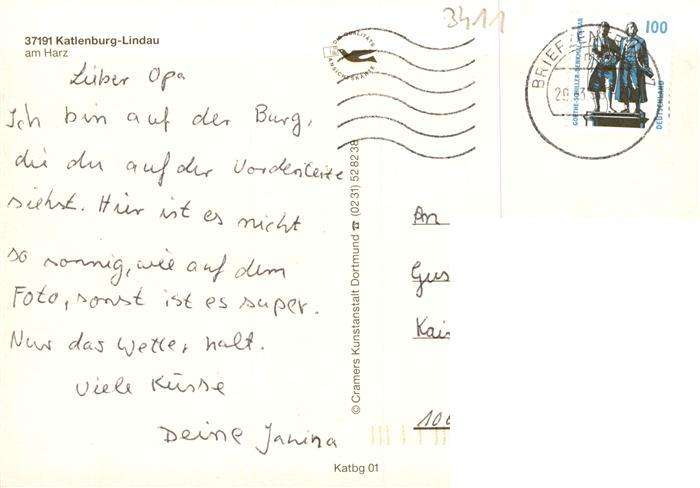 3411
37191 Katlenburg-Lindau
am Harz
Lieber Opa
Ich bin auf der Burg,
die du auf der Vorderseite
siehst. Hier ist es nicht
so sonnig, wie auf dem
Foto, sonst ist es super.
Nur das Wetter halt.
Viele Küsse
Deine Janina
© Cramers Kunstanstalt Dortmund ☎ (0231) 528238
Katbg 01
An
Gus
Kai
100
GOETHE-SCHILLER-DENKMAL WEIMAR
DEUTSCHLAND
BRIEFZEN